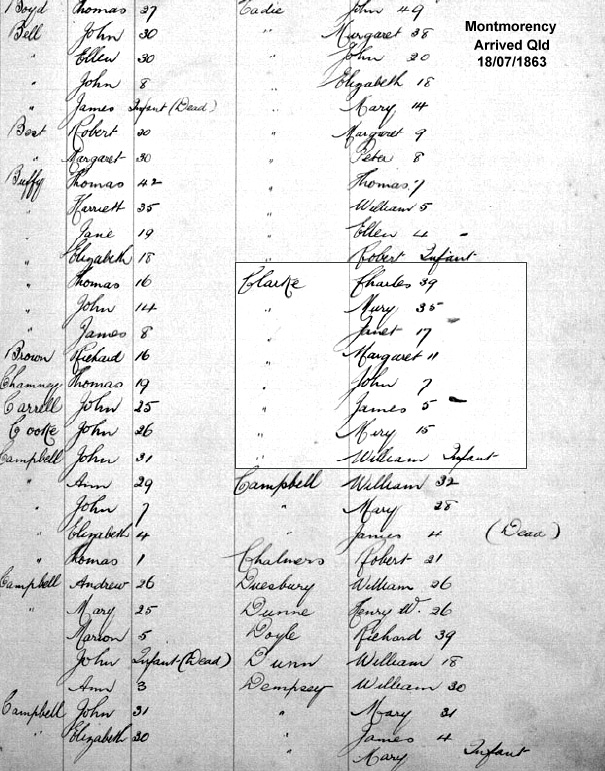 Boyd Thomas 27
Bell John 30
" Ellen 30
" John 8
" James Infant (Dead)
Best Robert 30
" Margaret 30
Buffy Thomas 42
" Harriett 35
" Jane 19
" Elizabeth 18
" Thomas 16
" John 14
" James 8
Brown Richard 16
Chamney Thomas 19
Carrell John 25
Cooke John 26
Campbell John 31
" Ann 29
" John 7
" Elizabeth 4
" Thomas 1
Campbell Andrew 26
" Mary 25
Marion 5
John Infant (Dead)
Ann 3
Campbell John 31
" Elizabeth 30
Eadie John 49
" Margaret 38
" John 20
" Elizabeth 18
" Mary 14
" Margaret 9
" Peter 8
" Thomas 7
" William 5
" Ellen 4
" Robert Infant
Clarke Charles 39
" Mary 35
" Janet 17
" Margaret 11
" John 7
" James 5
" Mary 15
" William Infant
Campbell William 32
" Mary 28
" James 4 (Dead)
Chalmers Robert 21
Duesbury William 26
Dunne Henry W. 26
Doyle Richard 39
Dunn William 18
Dempsey William 30
" Mary 31
" James 4
" Mary Infant
Montmorency
Arrived Qld
18/07/1863